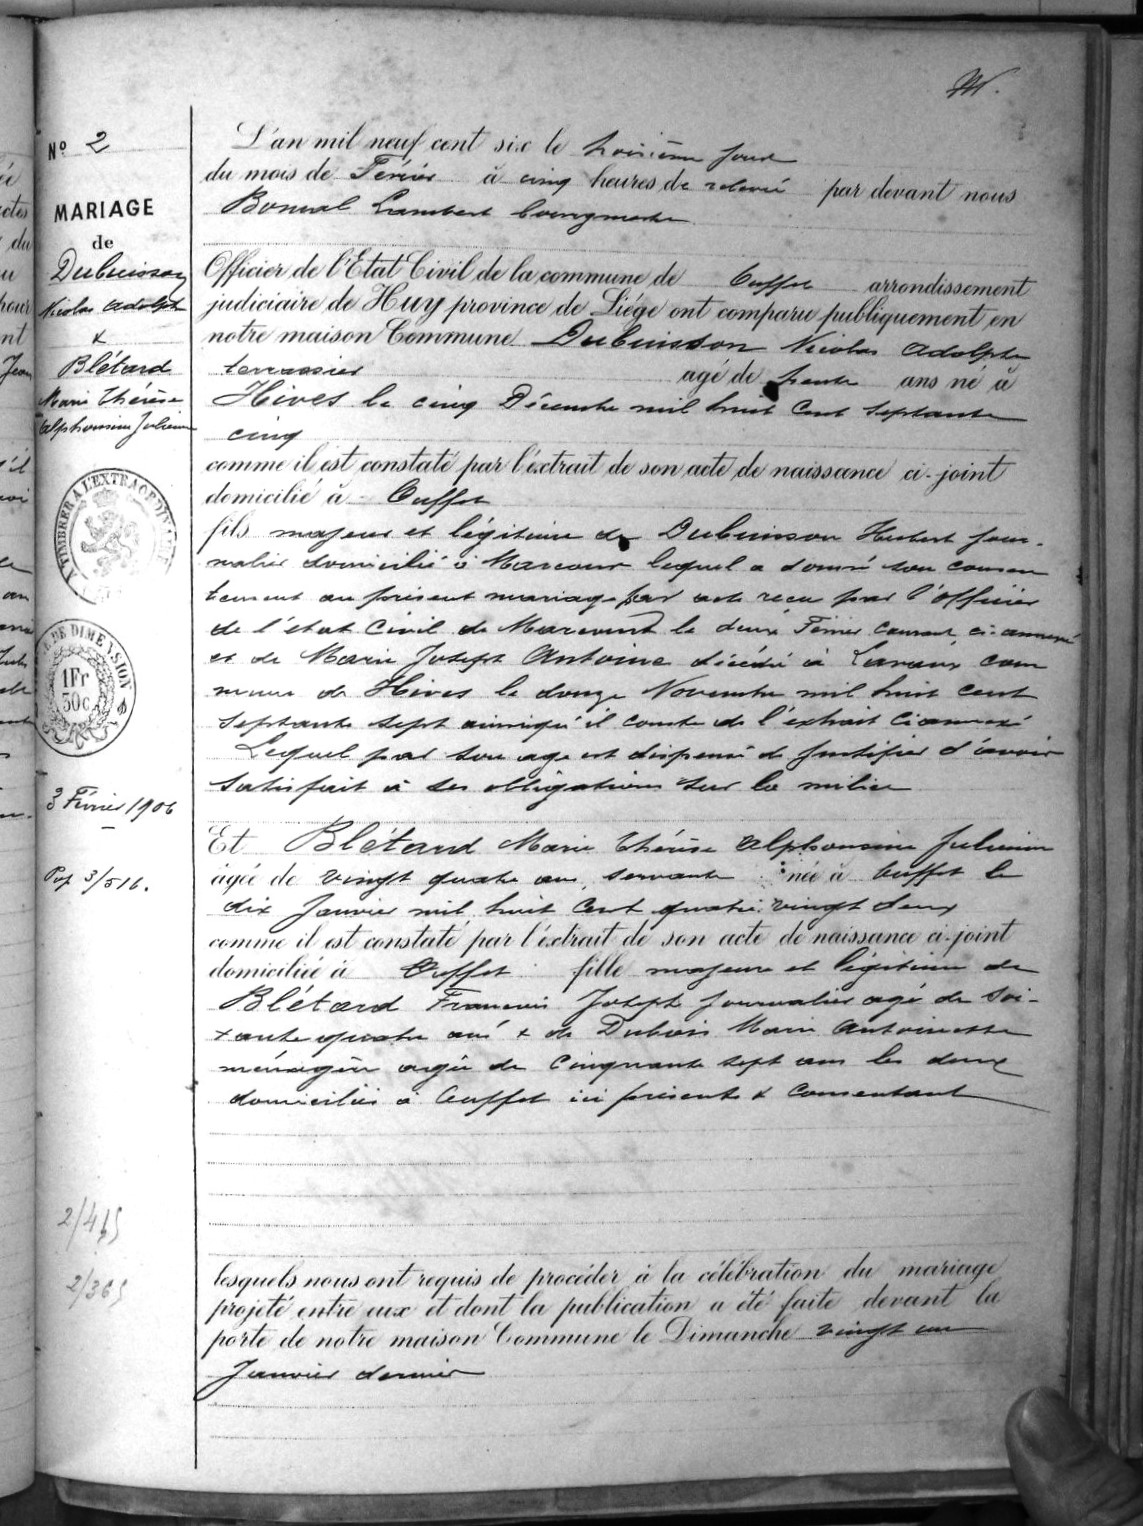 Nº 2
MARIAGE
de
Dubuisson
Nicolas Adolphe
&
Blétard
Marie Thérèse
Alphonsine Julienne
A TIMBRER A L'EXTRAORDINAIRE
DE DIMENSION
1Fr
50c
3 Février 1906
Pop 3/516.
2/365
L'an mil neuf cent six le troisième jour
du mois de Février à cinq heures de relevée par devant nous
Bonnal Lambert bourgmestre
Officier de l'Etat Civil de la commune de Ouffet arrondissement
judiciaire de Huy province de Liége ont comparu publiquement en
notre maison Commune Dubuisson Nicolas Adolphe
terrassier âgé de trente ans né à
Hives le cinq Décembre mil huit cent septante
cinq
comme il est constaté par l'extrait de son acte de naissance ci-joint
domicilié à Ouffet
fils majeur et légitime de Dubuisson Hubert jour-
nalier domicilié à Marcour lequel a donné son consen
tement au présent mariage par acte reçu par l'officier
de l'état Civil de Marcourt le deux Février courant ci-annexé
et de Marie Joseph Antoine décédée à Lavaux com
mune de Hives le douze Novembre mil huit cent
septante sept ainsi qu'il conste de l'extrait ci annexé
Lequel par son age est dispensé de justifier d'avoir
satisfait à ses obligations sur la milice
Et Blétard Marie Thérèse Alphonsine Julienne
âgée de vingt quatre ans, servante née à Ouffet le
dix Janvier mil huit cent quatre vingt deux
comme il est constaté par l'extrait de son acte de naissance ci-joint
domiciliée à Ouffet fille majeure et légitime de
Blétard François Joseph journalier agé de soi-
xante quatre ans & de Dubois Marie Antoinette
ménagère agée de cinquante sept ans les deux
domiciliés à Ouffet ici présents & consentant
lesquels nous ont requis de procéder à la célébration du mariage
projeté entre eux et dont la publication a été faite devant la
porte de notre maison Commune le Dimanche vingt un
Janvier dernier